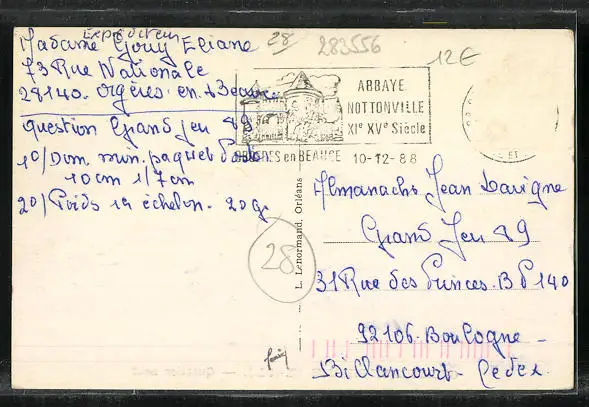 Expéditeur
Madame Gouy Eliane
73 Rue Nationale
28140. Orgères. en. Beauce.
Question Grand Jeu 89
1o) Dim mun. paquet
10 cm 1/7 cm
2o) Poids 1er échelon. 20g.
28
283556
12€
ABBAYE
NOTTONVILLE
XIe XVe Siècle
ORGERES en BEAUCE 10-12-88
L. Lenormand, Orléans
28
Almanachs Jean Lavigne
Grand Jeu 89
31 Rue des Princes. BP 140
92106. Boulogne -
Billancourt. Cedex.